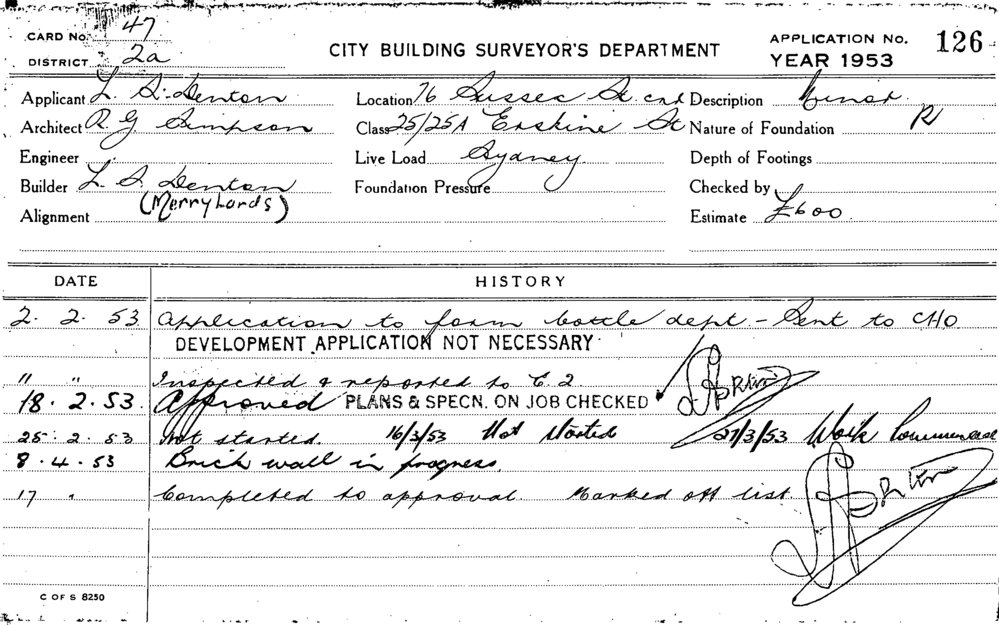 CARD No. 47
DISTRICT 2a
CITY BUILDING SURVEYOR'S DEPARTMENT
APPLICATION No. 126
YEAR 1953
Applicant L. S. Denton
Architect R G Simpson
Engineer
Builder L. S. Denton
(Merrylands)
Alignment
Location 76 Sussex St. cnr
Class 25/25A Erskine St
Live Load Sydney
Foundation Pressure
Description Minor.
Nature of Foundation R
Depth of Footings
Checked by
Estimate £600.
DATE HISTORY
2. 2. 53 Application to form bottle dept - Sent to CHO.
DEVELOPMENT APPLICATION NOT NECESSARY
" " Inspected & reported to C. 2.
18. 2. 53. Approved PLANS & SPECN. ON JOB CHECKED
25. 2. 53 Not started. 16/3/53 Not Started 27/3/53 Work Commenced
8. 4. 53 Brick wall in progress
17 " Completed to approval. Marked off list
C OF S 8250